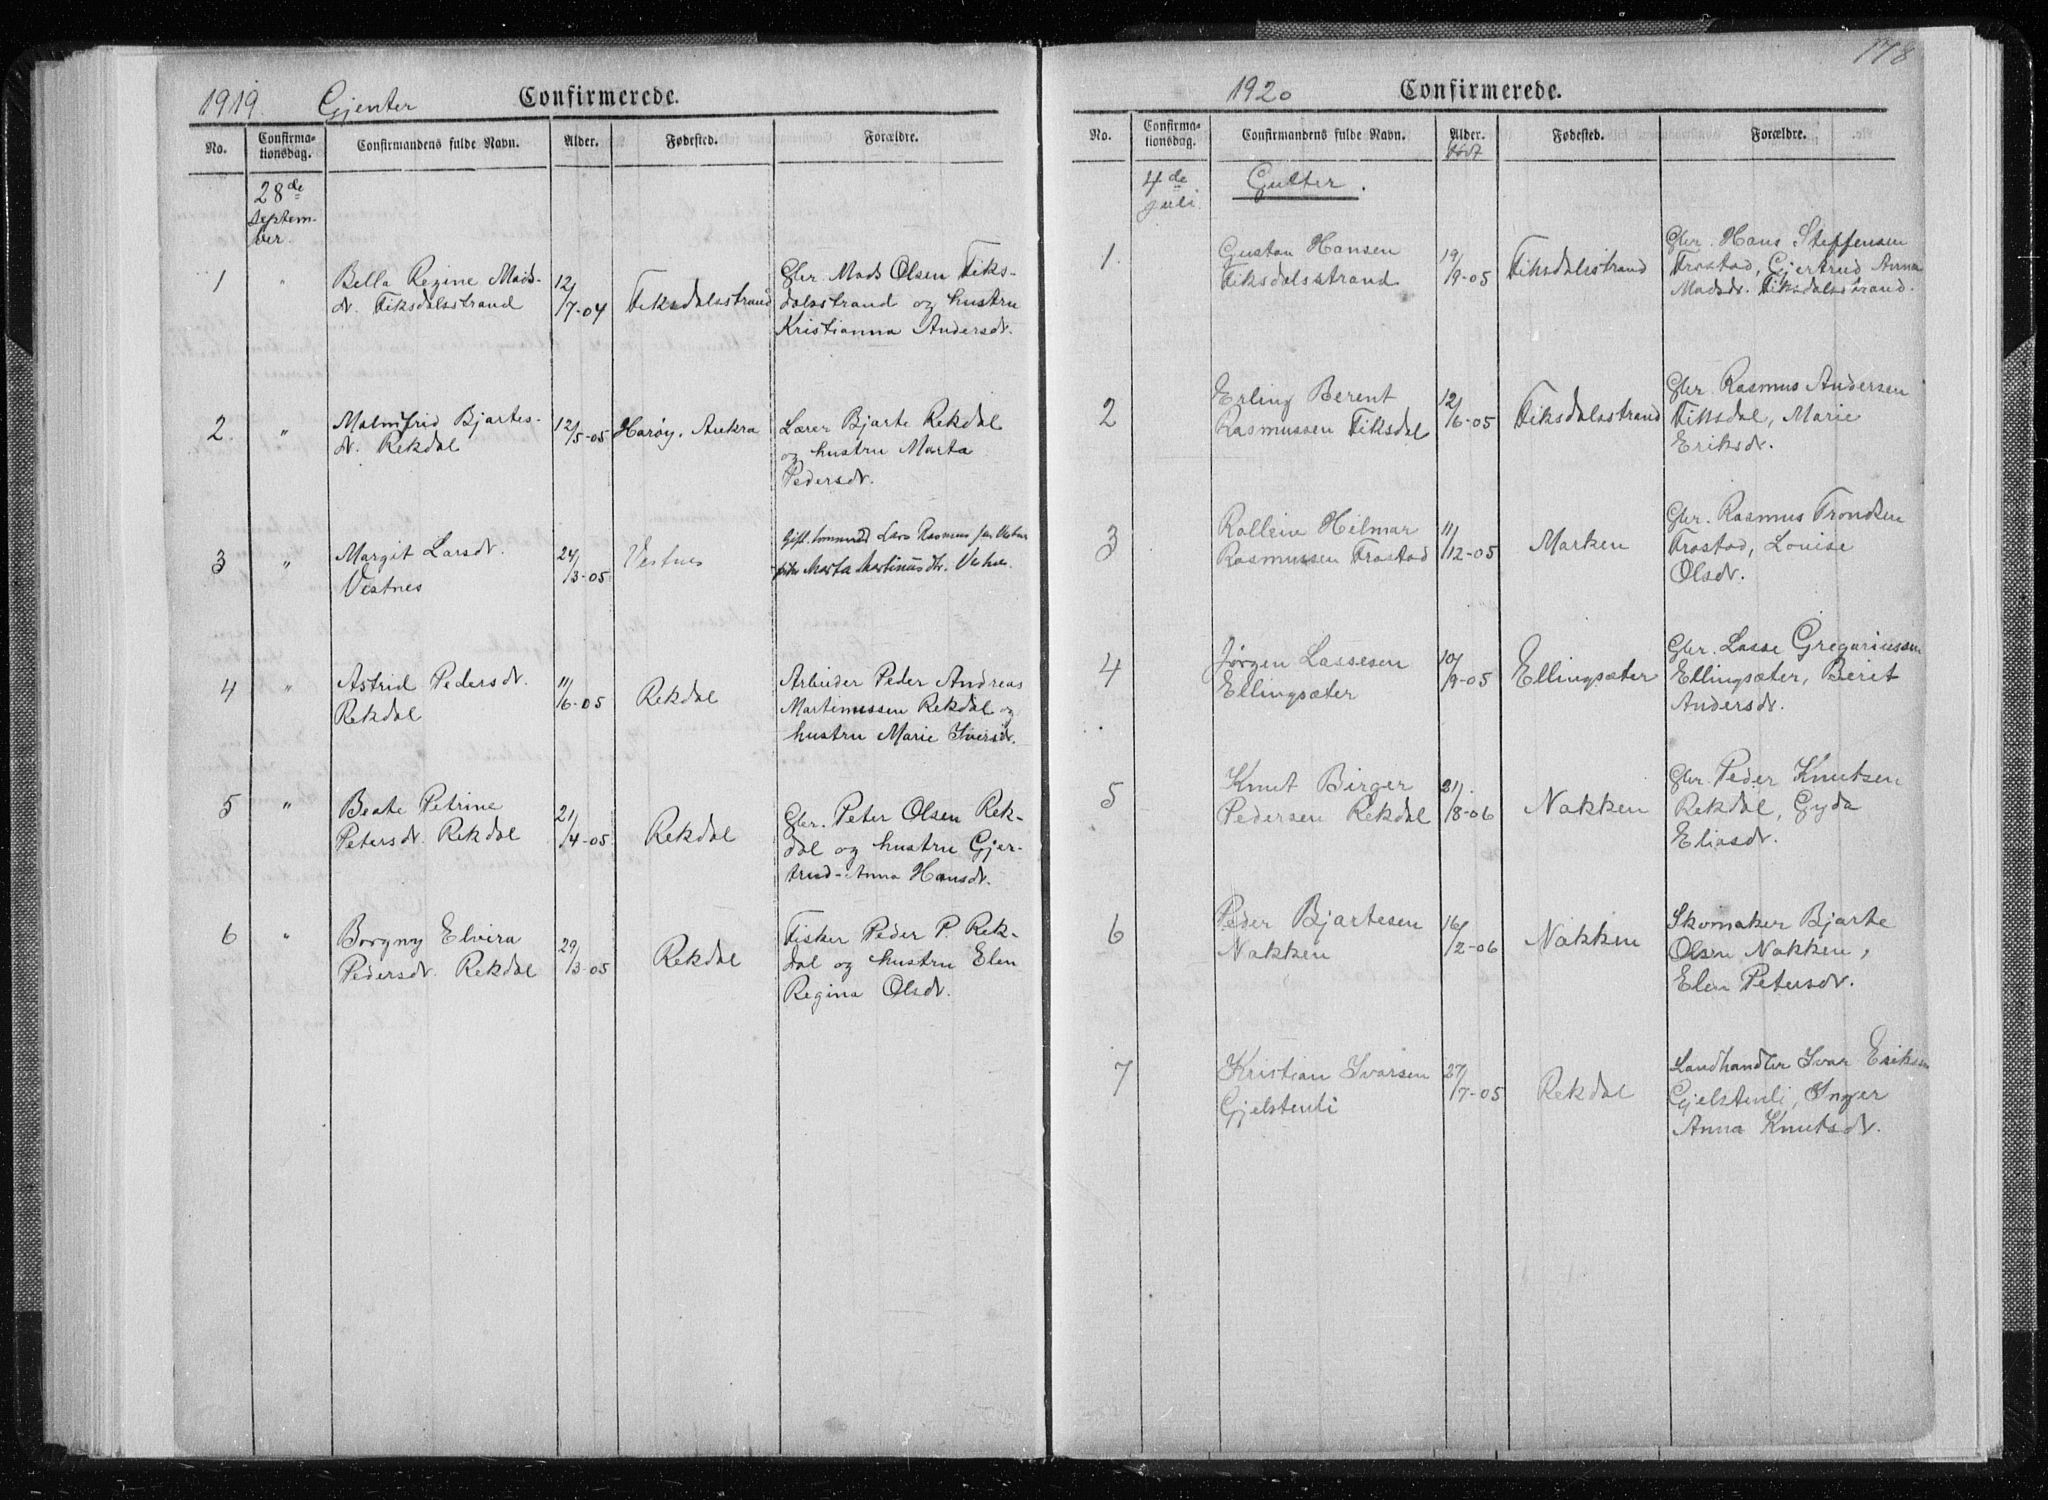 1919 Gjenter Confirmerede.
No. Confirma-tionsdag. Confirmandens fulde Navn. Alder. Fødested. Forældre.
28de
septem-
ber
1 " Bella Regine Mads-
dr. Fiksdalsstrand
12/7-04
Fiksdalsstrand
Gbr. Mads Olsen Fiks-
dalsstrand og hustru
Kristianna Andersdr.
2. " Malmfrid Bjartes-
dr. Rekdal
12/5-05
Harøy, Aukra
Lærer Bjarte Rekdal
og hustru Marta
Pedersdr.
3 " Margit Larsdr.
Vestnes
24/3-05
Vestnes
Lars Rasmus
Marta Martinusdtr.
4 " Astrid Pedersdr.
Rekdal
11/6-05
Rekdal
Arbeider Peder Andreas
Martinussen Rekdal og
hustru Marie Iversdr.
5 " Beate Petrine
Petersdr. Rekdal
21/4-05
Rekdal
Gbr. Peter Olsen Rek-
dal og hustru Gjer-
trud-Anna Hansdr.
6 " Borgny Elvira
Pedersdr. Rekdal
29/3-05
Rekdal
Fisker Peder P. Rek-
dal og hustru Elen
Regina Olsdr.
178
1920 Confirmerede.
No. Confirma-tionsdag. Confirmandens fulde Navn. Alder. født Fødested. Forældre.
4de
juli.
Gutter.
1. Gustav Hansen
Fiksdalsstrand
19/9-05
Fiksdalsstrand
Gbr. Hans Steffensen
Frostad, Gjertrud Anna
Madsdr. Fiksdalsstrand.
2 Erling Berent
Rasmussen Fiksdal
12/6-05
Fiksdalsstrand
Gbr. Rasmus Andersen
Fiksdal, Marie
Eriksdr.
3 Rollein Hilmar
Rasmussen Frostad
11/12-05
Marken
Gbr. Rasmus Trondsen
Frostad, Louise
Olsdr.
4 Jørgen Lassesen
Ellingsæter
10/9-05
Ellingsæter
Gbr. Lasse Gregoriussen
Ellingsæter, Berit
Andersdr.
5 Knut Birger
Pedersen Rekdal
21/8-06
Nakken
Gbr. Peder Knutsen
Rekdal, Gyda
Eliasdr.
6 Peder Bjartesen
Nakken
16/2-06
Nakken
Skomaker Bjarte
Olsen Nakken,
Elen Petersdr.
7 Kristian Ivarsen
Gjelstenli
27/7-05
Rekdal
Landhandler Ivar Eriksen
Gjelstenli, Inger
Anna Knutsdr.